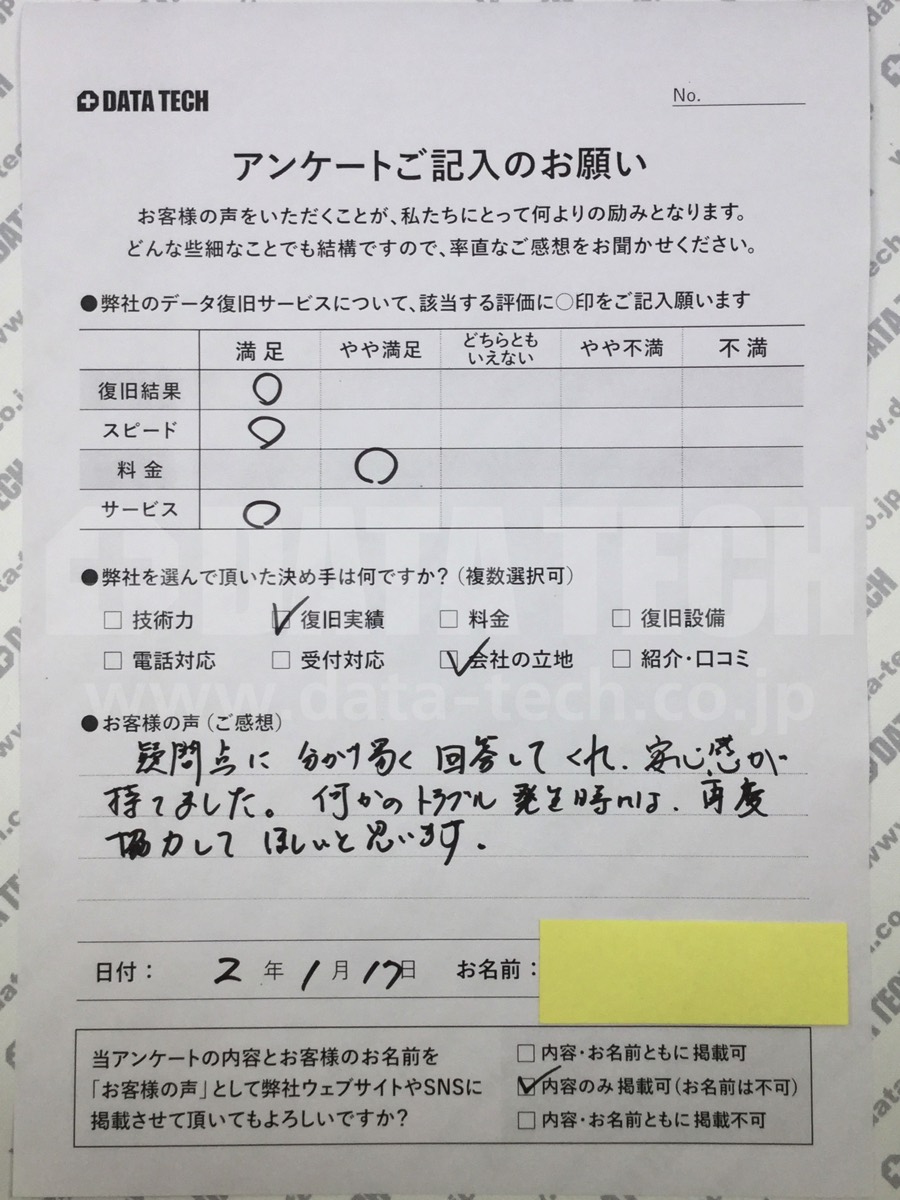 DATA TECH
No.
アンケートご記入のお願い
お客様の声をいただくことが、私たちにとって何よりの励みとなります。
どんな些細なことでも結構ですので、率直なご感想をお聞かせください。
●弊社のデータ復旧サービスについて、該当する評価に○印をご記入願います
満足 やや満足 どちらとも いえない やや不満 不満
復旧結果 ○
スピード ○
料金 ○
サービス ○
DATA TECH
●弊社を選んで頂いた決め手は何ですか?(複数選択可)
□ 技術力 ☑ 復旧実績 □ 料金 □ 復旧設備
□ 電話対応 □ 受付対応 ☑ 会社の立地 □ 紹介・口コミ
www.data-tech.co.jp
●お客様の声(ご感想)
疑問点に 分かり易く 回答してくれ、安心感が
持てました。何かのトラブル発生時には、再度
協力して ほしいと思います。
日付: 2 年 1 月 17日 お名前:
当アンケートの内容とお客様のお名前を
「お客様の声」として弊社ウェブサイトやSNSに
掲載させて頂いてもよろしいですか?
□ 内容・お名前ともに掲載可
☑ 内容のみ掲載可(お名前は不可)
□ 内容・お名前ともに掲載不可